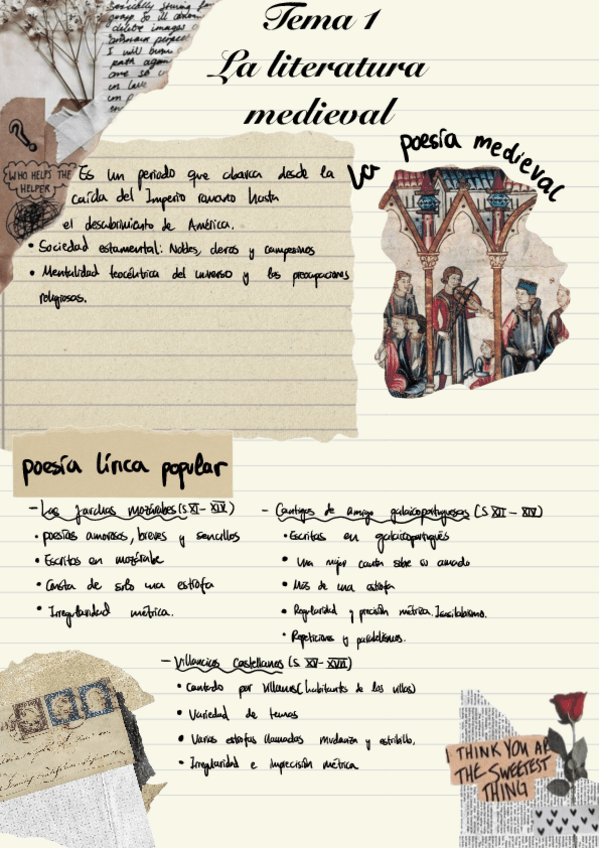 Tema 1
La literatura
medieval
socially
group so ill
delete images
I will
path again
one so
in love
?
WHO HELPS THE
HELPER
Es un periodo que abarca desde la
caída del Imperio romano hasta
el descubrimiento de América.
• Sociedad estamental: Nobles, cleros y campesinos
• Mentalidad teocéntrica del universo y las preocupaciones
religiosas.
La poesía medieval
poesía lírica popular
- Las jarchas mozárabes (S.XI - XIV)
• poesías amorosas, breves y sencillas
• Escritas en mozárabe
• Consta de solo una estrofa
• Irregularidad métrica.
- Cantigas de amigo galaicoportuguesas (S XII - XIV)
• Escritas en galaicoportugués
• Una mujer canta sobre su amado
• Más de una estrofa
• Regularidad y precisión métrica. Isosilabismo.
• Repeticiones y paralelismos.
- Villancicos Castellanos (S. XV - XVII)
• Cantado por villanos (habitants de las villas)
• Variedad de temas
• Varias estrofas llamadas mudanza y estribillo.
• Irregularidad e imprecisión métrica
I THINK YOU ARE
THE SWEETEST
THING